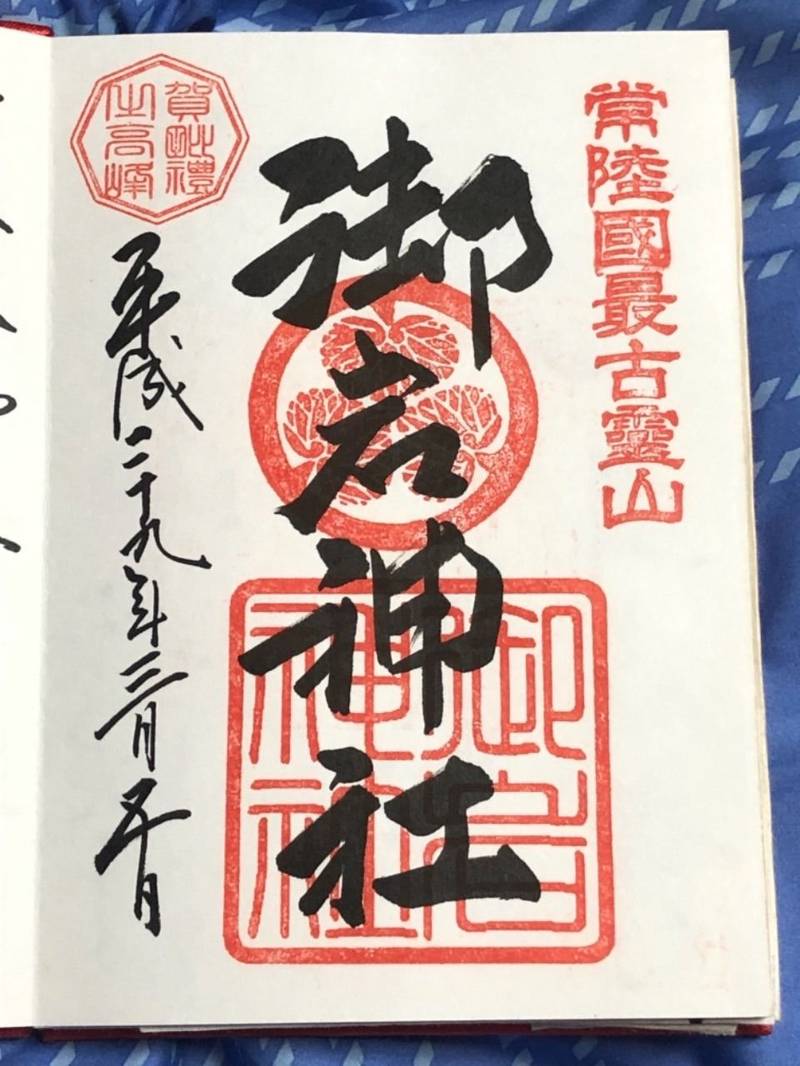 常陸國最古靈山
御岩神社
御岩神社
賀毗禮之高峰
平成二十九年三月五日